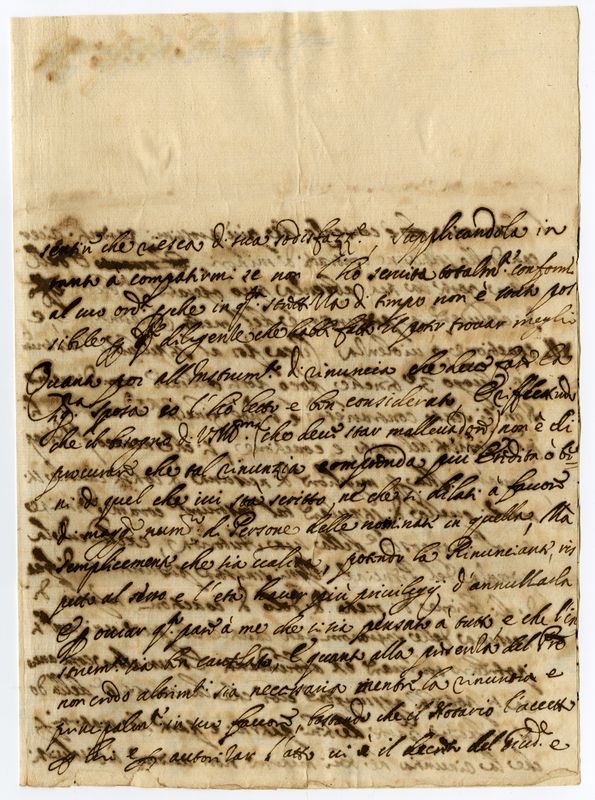 sentir che riesca di sua sodisfaz.e, supplicandola in
tanto à compatirmi se non l'ho servita totalm.te conform
al suo ord.e, che in q.ta di tempo non è stato pos
sibile diligente che habb fatto il poter trovar meglio
Quanto poi all'Instrum.to di rinuncia che deve fare la
sposa io l'ho letto e ben considerato. E riflettendo
che il bisogno di (che deve star mallevadore) non è di
procurare che tal rinunzia comprenda più heredità ò be
ni di quel che ivi sta scritto, ne che si dilati à favore
di maggior num.o di Persone delle nominate in quella, Mà
semplicemente che sia valida, potendo la Rinunciante, ris
petto al sesso e l'età haver più privilegij d'annullarla
E p ovviar q.to pare à me che si sia pensato à tutto e che l'in
strum.to sia ben cautelato, E quanto alla presenza del
non credo altrim.te sia necessaria mentre la rinunzia è
principalm.te in suo favore, bastando che il Notario l'accett
p lui e p autorizar l'atto vi è il decreto del Giud.e e